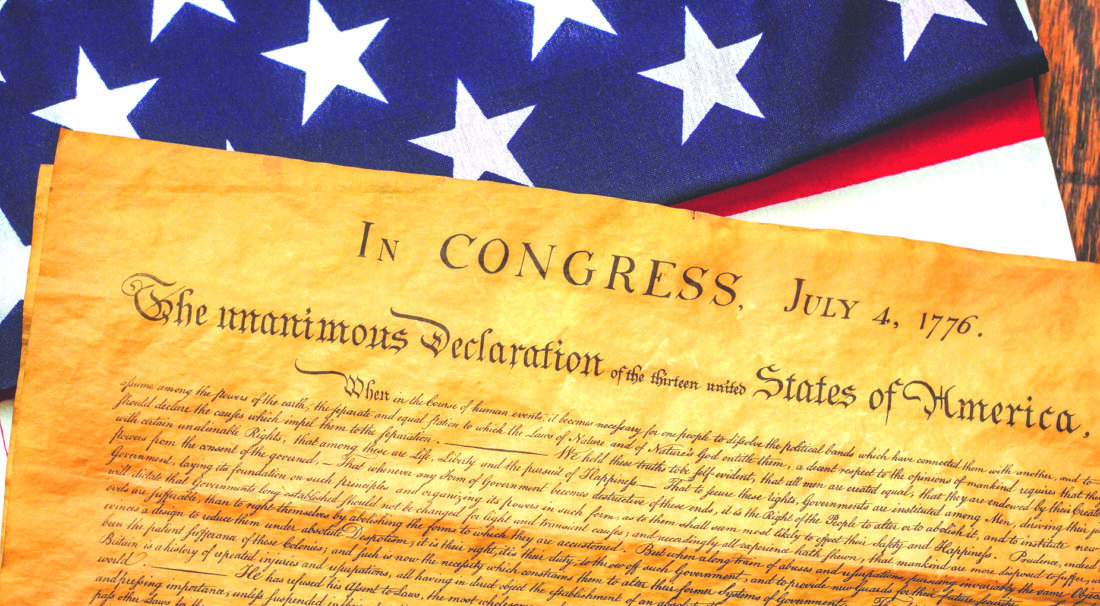 In CONGRESS, July 4, 1776.
The unanimous Declaration of the thirteen united States of America,
When in the Course of human events, it becomes necessary for one people to dissolve the political bands which have connected them with another, and to
assume among the powers of the earth, the separate and equal station to which the Laws of Nature and of Nature's God entitle them, a decent respect to the opinions of mankind requires that they
should declare the causes which impel them to the separation. — We hold these truths to be self-evident, that all men are created equal, that they are endowed by their Creator
with certain unalienable Rights, that among these are Life, Liberty and the pursuit of Happiness. — That to secure these rights, Governments are instituted among Men, deriving their just
powers from the consent of the governed, — That whenever any Form of Government becomes destructive of these ends, it is the Right of the People to alter or to abolish it, and to institute new
Government, laying its foundation on such principles and organizing its powers in such form, as to them shall seem most likely to effect their Safety and Happiness. Prudence, indeed
will dictate that Governments long established should not be changed for light and transient causes; and accordingly all experience hath shewn, that mankind are more disposed to suffer,
evils are sufferable, than to right themselves by abolishing the forms to which they are accustomed. But when a long train of abuses and usurpations, pursuing invariably the same Object
evinces a design to reduce them under absolute Despotism, it is their right, it is their duty, to throw off such Government, and to provide new Guards for their future
been the patient sufferance of these Colonies; and such is now the necessity which constrains them to alter their former Systems of Government.
Britain is a history of repeated injuries and usurpations, all having in direct object the establishment of an
world. — He has refused his Assent to Laws, the most
and pressing importance, unless suspended in their
pass other Laws for the